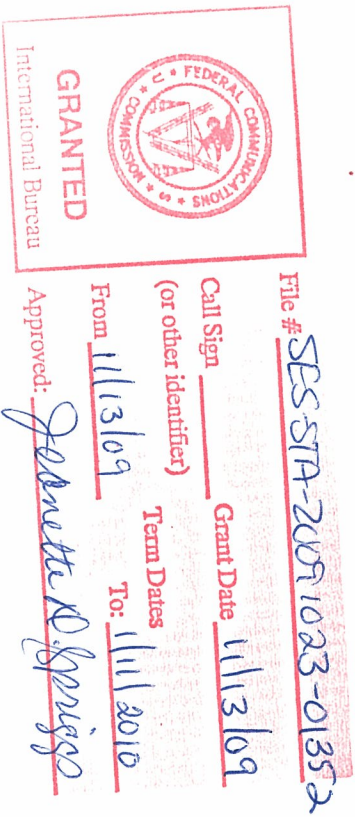 FEDERAL COMMUNICATIONS COMMISSION
U S
GRANTED
International Bureau
File # SES-STA-20091023-01352
Call Sign Grant Date 11/13/09
(or other identifier)
Term Dates
From 11/13/09 To: 1/11/2010
Approved: Jeanette D. Spriggs